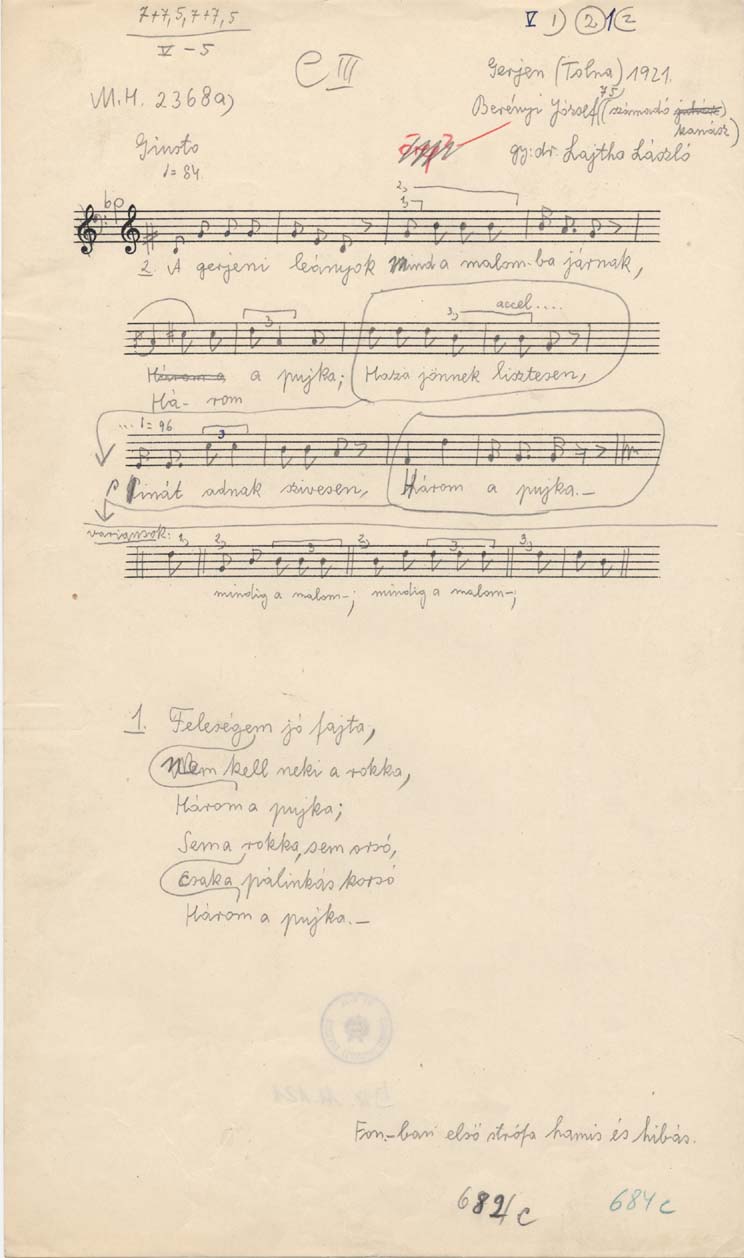 7+7, 5, 7+7, 5
V – 5
V 1) 2 1 2
C III
Gerjen (Tolna) 1921.
M.H. 2368a)
75
Berényi József (számadó juhász)
kanász)
Giusto
gy: dr. Lajtha László
♩= 84.
2,
1,
bp
2. A gerjeni leányok Mind a malom-ba járnak,
accel....
3
3,
Három a a pujka; Haza jönnek lisztesen,
Há- rom
... ♩= 96
3
Pinát adnak szivesen, Három a pujka.–
variánsok:
1, 2, 3 2, 3 3,
mindig a malom-; mindig a malom-;
1. Feleségem jó fajta,
Nem kell neki a rokka,
Három a pujka;
Sem a rokka, sem orsó,
Csak a pálinkás korsó
Három a pujka.–
Fon.-ban első strófa hamis és hibás.
682/c
684c